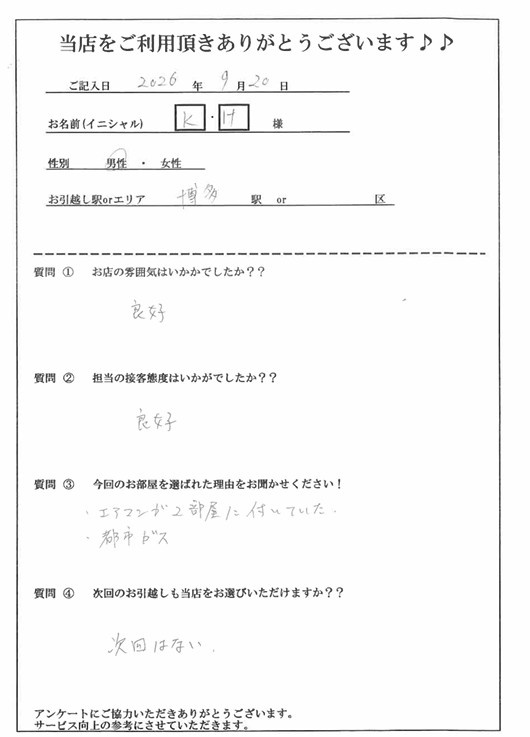 当店をご利用頂きありがとうございます♪♪
ご記入日 2026 年 9 月 20 日
お名前(イニシャル) K ・ H 様
性別 男性 ・ 女性
お引越し駅orエリア 博多 駅 or 区
質問 ① お店の雰囲気はいかかでしたか??
良好
質問 ② 担当の接客態度はいかがでしたか??
良好
質問 ③ 今回のお部屋を選ばれた理由をお聞かせください!
・エアマンが2部屋に付いていた.
・都市ガス
質問 ④ 次回のお引越しも当店をお選びいただけますか??
次回はない.
アンケートにご協力いただきありがとうございます。
サービス向上の参考にさせていただきます。